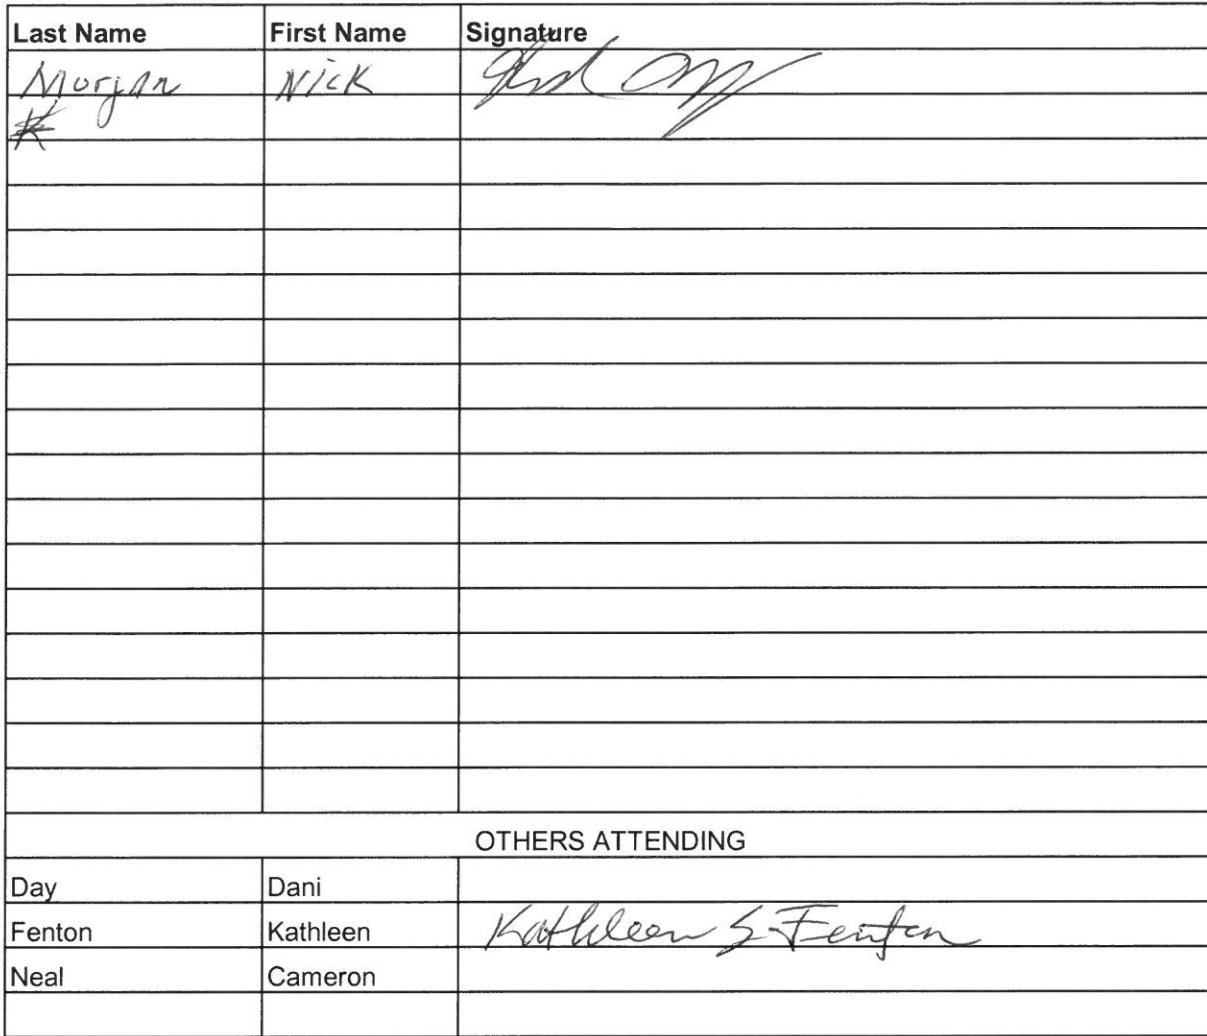 Last Name First Name Signature
Morgan Nick
OTHERS ATTENDING
Day Dani
Fenton Kathleen Kathleen S. Fenton
Neal Cameron